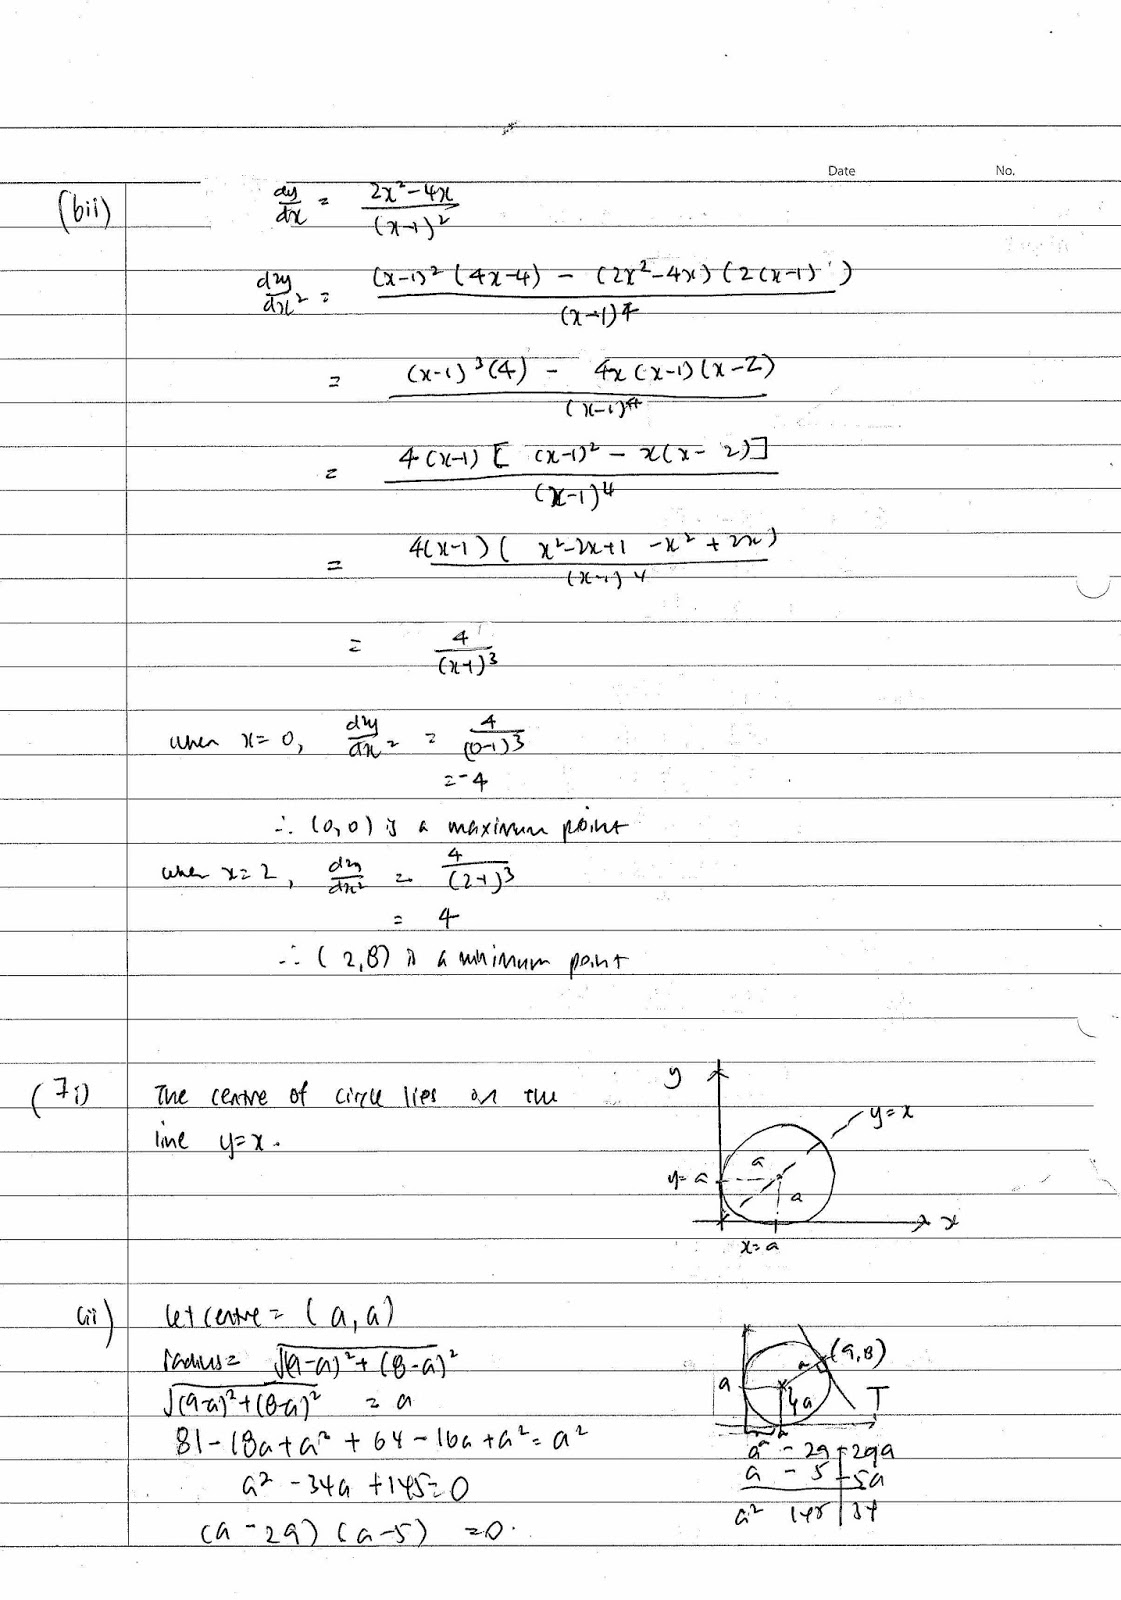 Date No.
(bii) dy/dx = (2x² - 4x)/(x-1)²
d²y/dx² = ((x-1)² (4x-4) - (2x²-4x)(2(x-1)))/(x-1)⁴
= ((x-1)³(4) - 4x(x-1)(x-2))/(x-1)⁴
= (4(x-1)[(x-1)² - x(x-2)])/(x-1)⁴
= (4(x-1)(x²-2x+1-x²+2x))/(x-1)⁴
= 4/(x-1)³
when x=0, d²y/dx² = 4/(0-1)³
= -4
∴ (0,0) is a maximum point
when x=2, d²y/dx² = 4/(2-1)³
= 4
∴ (2,8) is a minimum point
(7i) The centre of circle lies on the
line y=x.
y
y=x
a
y=a
a
x
x=a
(ii) let centre = (a, a)
radius = √((9-a)²+(8-a)²)
√((9-a)²+(8-a)²) = a
81-18a+a²+64-16a+a²=a²
a²-34a+145=0
(a-29)(a-5)=0.
(9,8)
a
a
a
T
a
a -29 | -29a
a -5 | -5a
a² 145 | 34